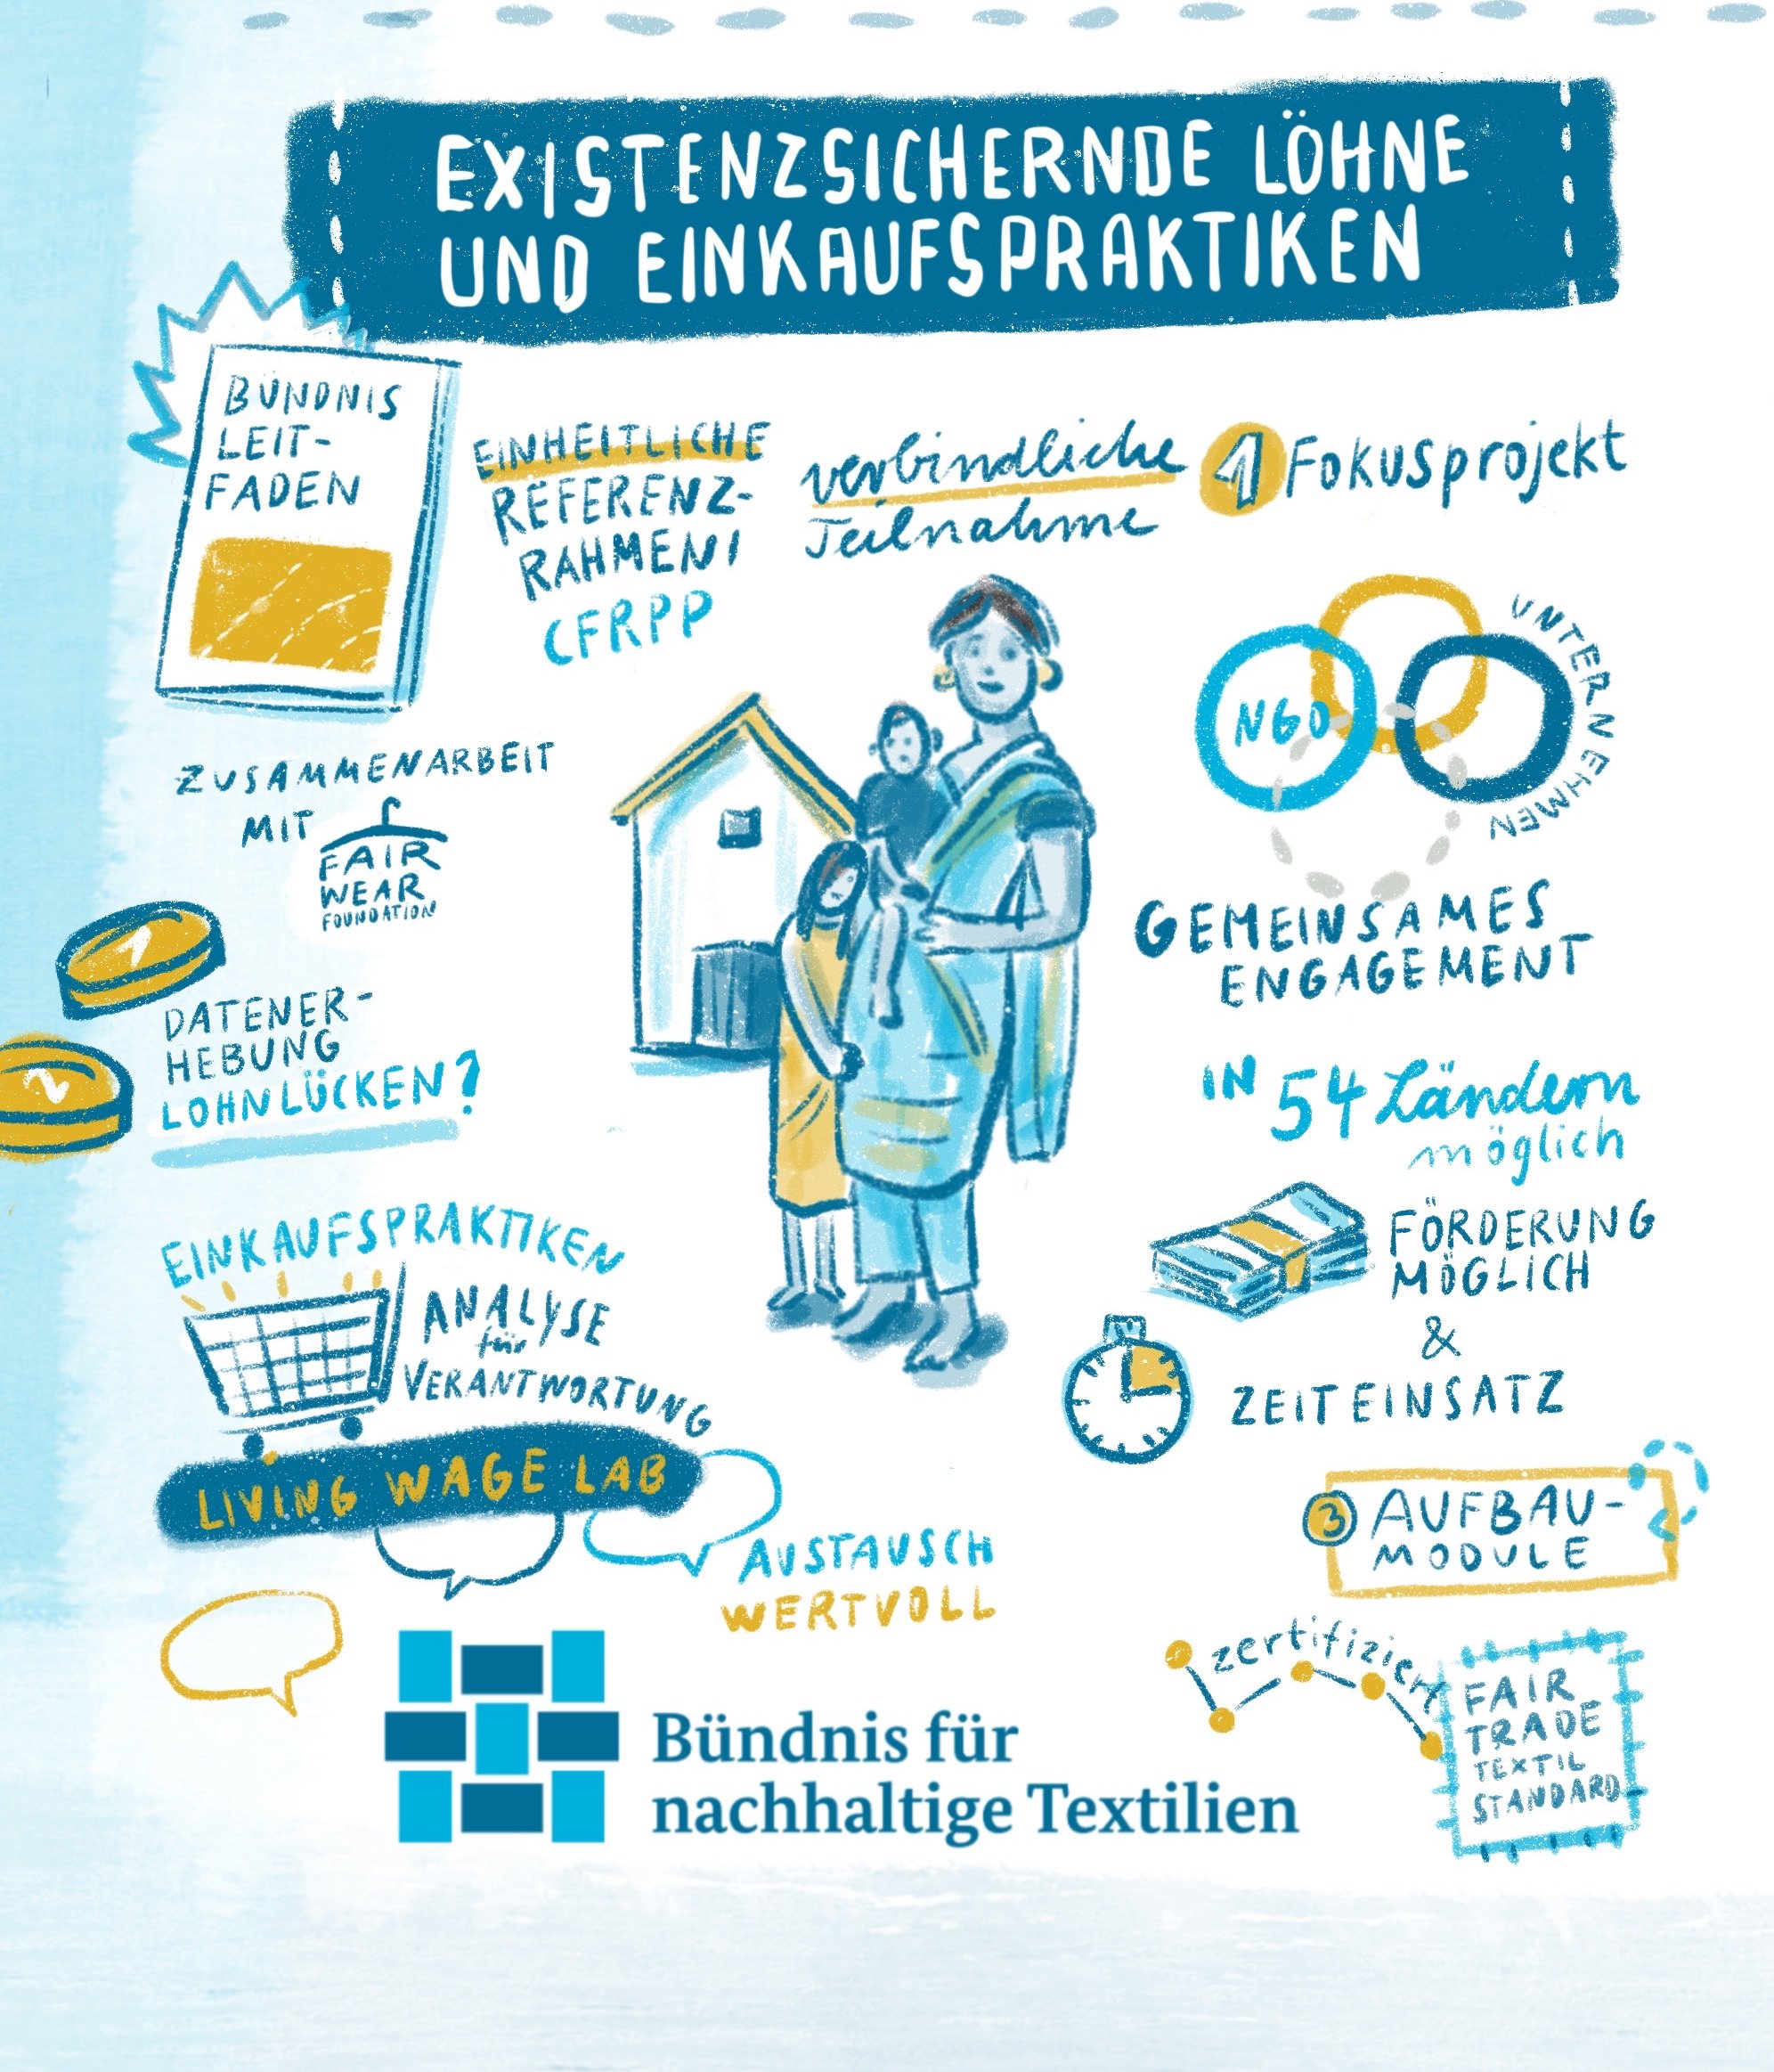 EXISTENZSICHERNDE LÖHNE
UND EINKAUFSPRAKTIKEN
BÜNDNIS
LEIT-
FADEN
EINHEITLICHE
REFERENZ-
RAHMEN!
CFRPP
verbindliche
Teilnahme
1 Fokusprojekt
NGO
UNTERNEHMEN
ZUSAMMENARBEIT
MIT
FAIR
WEAR
FOUNDATION
GEMEINSAMES
ENGAGEMENT
1
2
DATENER-
HEBUNG
LOHNLÜCKEN?
IN 54 Ländern
möglich
FÖRDERUNG
MÖGLICH
&
ZEITEINSATZ
EINKAUFSPRAKTIKEN
ANALYSE
für
VERANTWORTUNG
LIVING WAGE LAB
AUSTAUSCH
WERTVOLL
3 AUFBAU-
MODULE
zertifiziert
FAIR
TRADE
TEXTIL
STANDARD
Bündnis für
nachhaltige Textilien